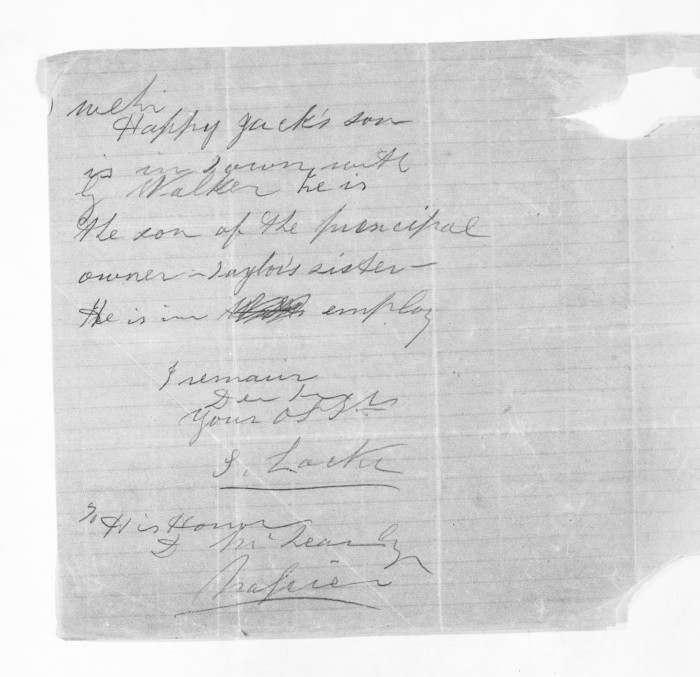 Happy Jack's son
is in Town with
G Walker he is
the son of the principal
owner - Taylor's sister -
He is in employ
I remain
Dear Sir
Your Obt St
S. Locke
To His Honor
D McLean Esq
Napier